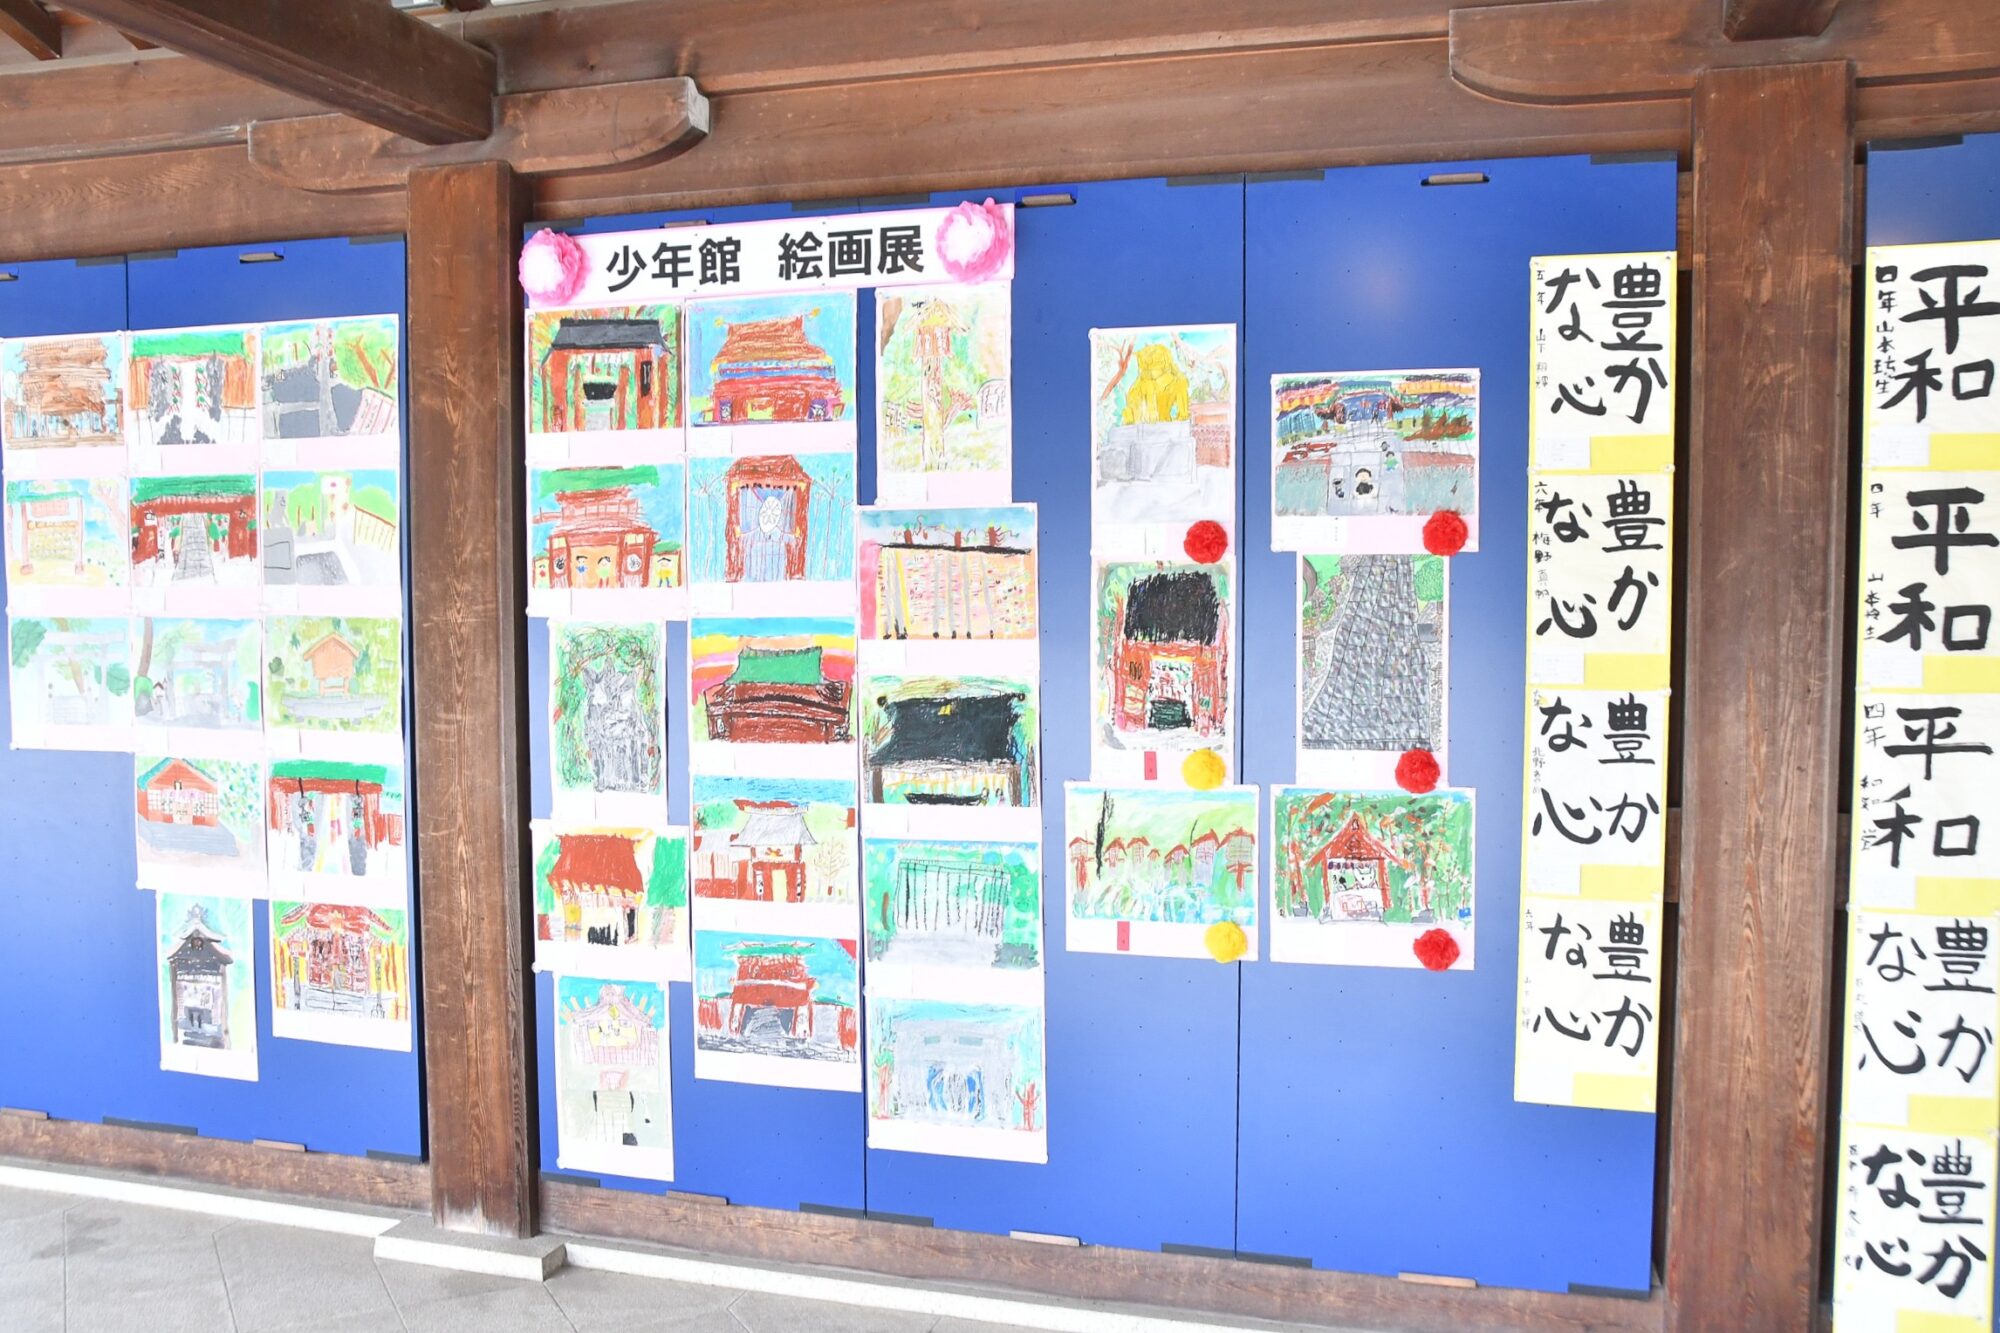 少年館 絵画展
豊かな心
五年 山下
豊かな心
六年 梅野
豊かな心
豊かな心
六年
平和
四年 山本
平和
四年 山本
平和
四年
豊かな心
豊かな心